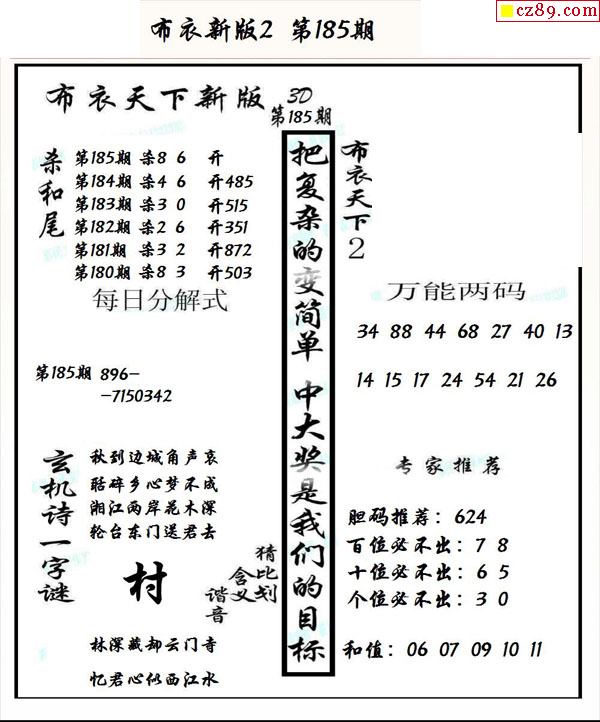 cz89.com
布衣新版2 第185期
布衣天下新版 3D
第185期
杀和尾
第185期 杀8 6 开
第184期 杀4 6 开485
第183期 杀3 0 开515
第182期 杀2 6 开351
第181期 杀3 2 开872
第180期 杀8 3 开503
每日分解式
第185期 896-
-7150342
玄机诗一字谜
秋到边城角声哀
聒碎乡心梦不成
湘江两岸花木深
轮台东门送君去
村
猜比划
含义
谐音
林深藏却云门寺
忆君心似西江水
把复杂的变简单 中大奖是我们的目标
布衣天下2
万能两码
34 88 44 68 27 40 13
14 15 17 24 54 21 26
专家推荐
胆码推荐：624
百位必不出：7 8
十位必不出：6 5
个位必不出：3 0
和值：06 07 09 10 11